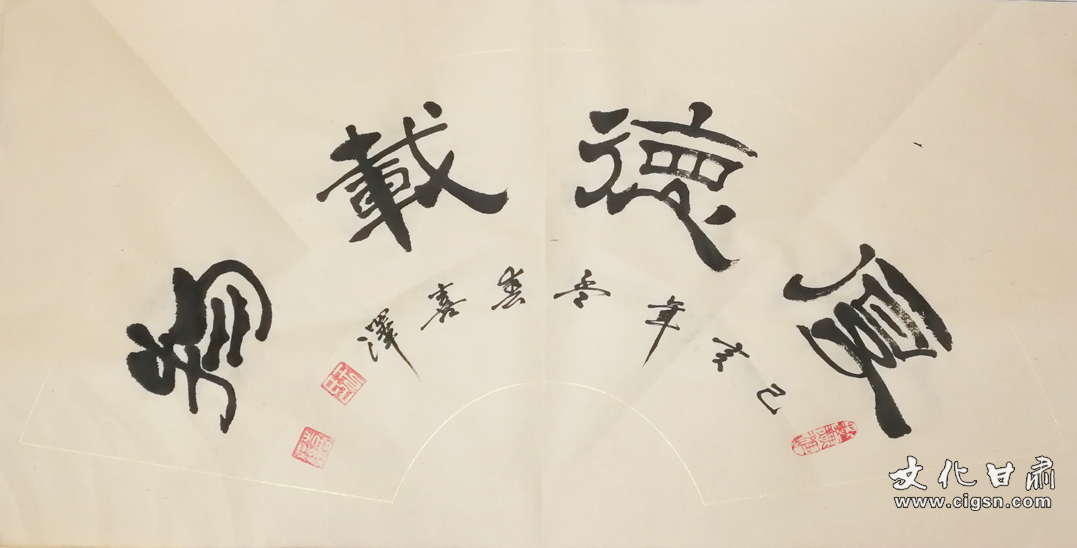 厚德載物
己亥年季春喜澤
文化甘肃
www.cigsn.com